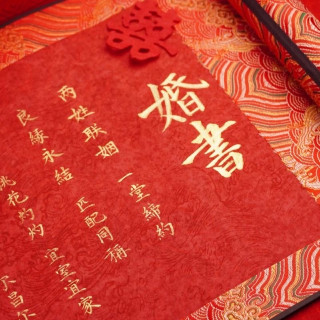 囍
婚書
兩姓联姻 一堂締約
良缘永结 匹配同稱
桃花灼灼 宜室宜家
尔昌尔